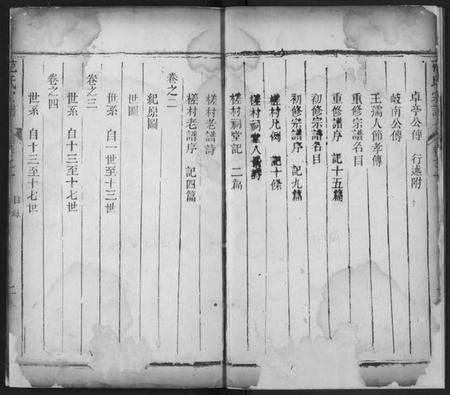 卓亭公傳　行述附
岐南公傳
王孺人節孝傳
重修宗譜名目
重修譜序　記十五篇
初修宗譜名目
初修宗譜序　記九篇
槎村凡例　記十條
槎村祠堂八景詩
槎村祠堂記　二篇
槎村老譜詩
槎村老譜序　記四篇
卷之二
紀原圖
世圖
卷之三
世系　自一世至十三世
世系　自十三至十七世
卷之四
世系　自十三至十七世
范氏
目錄
二